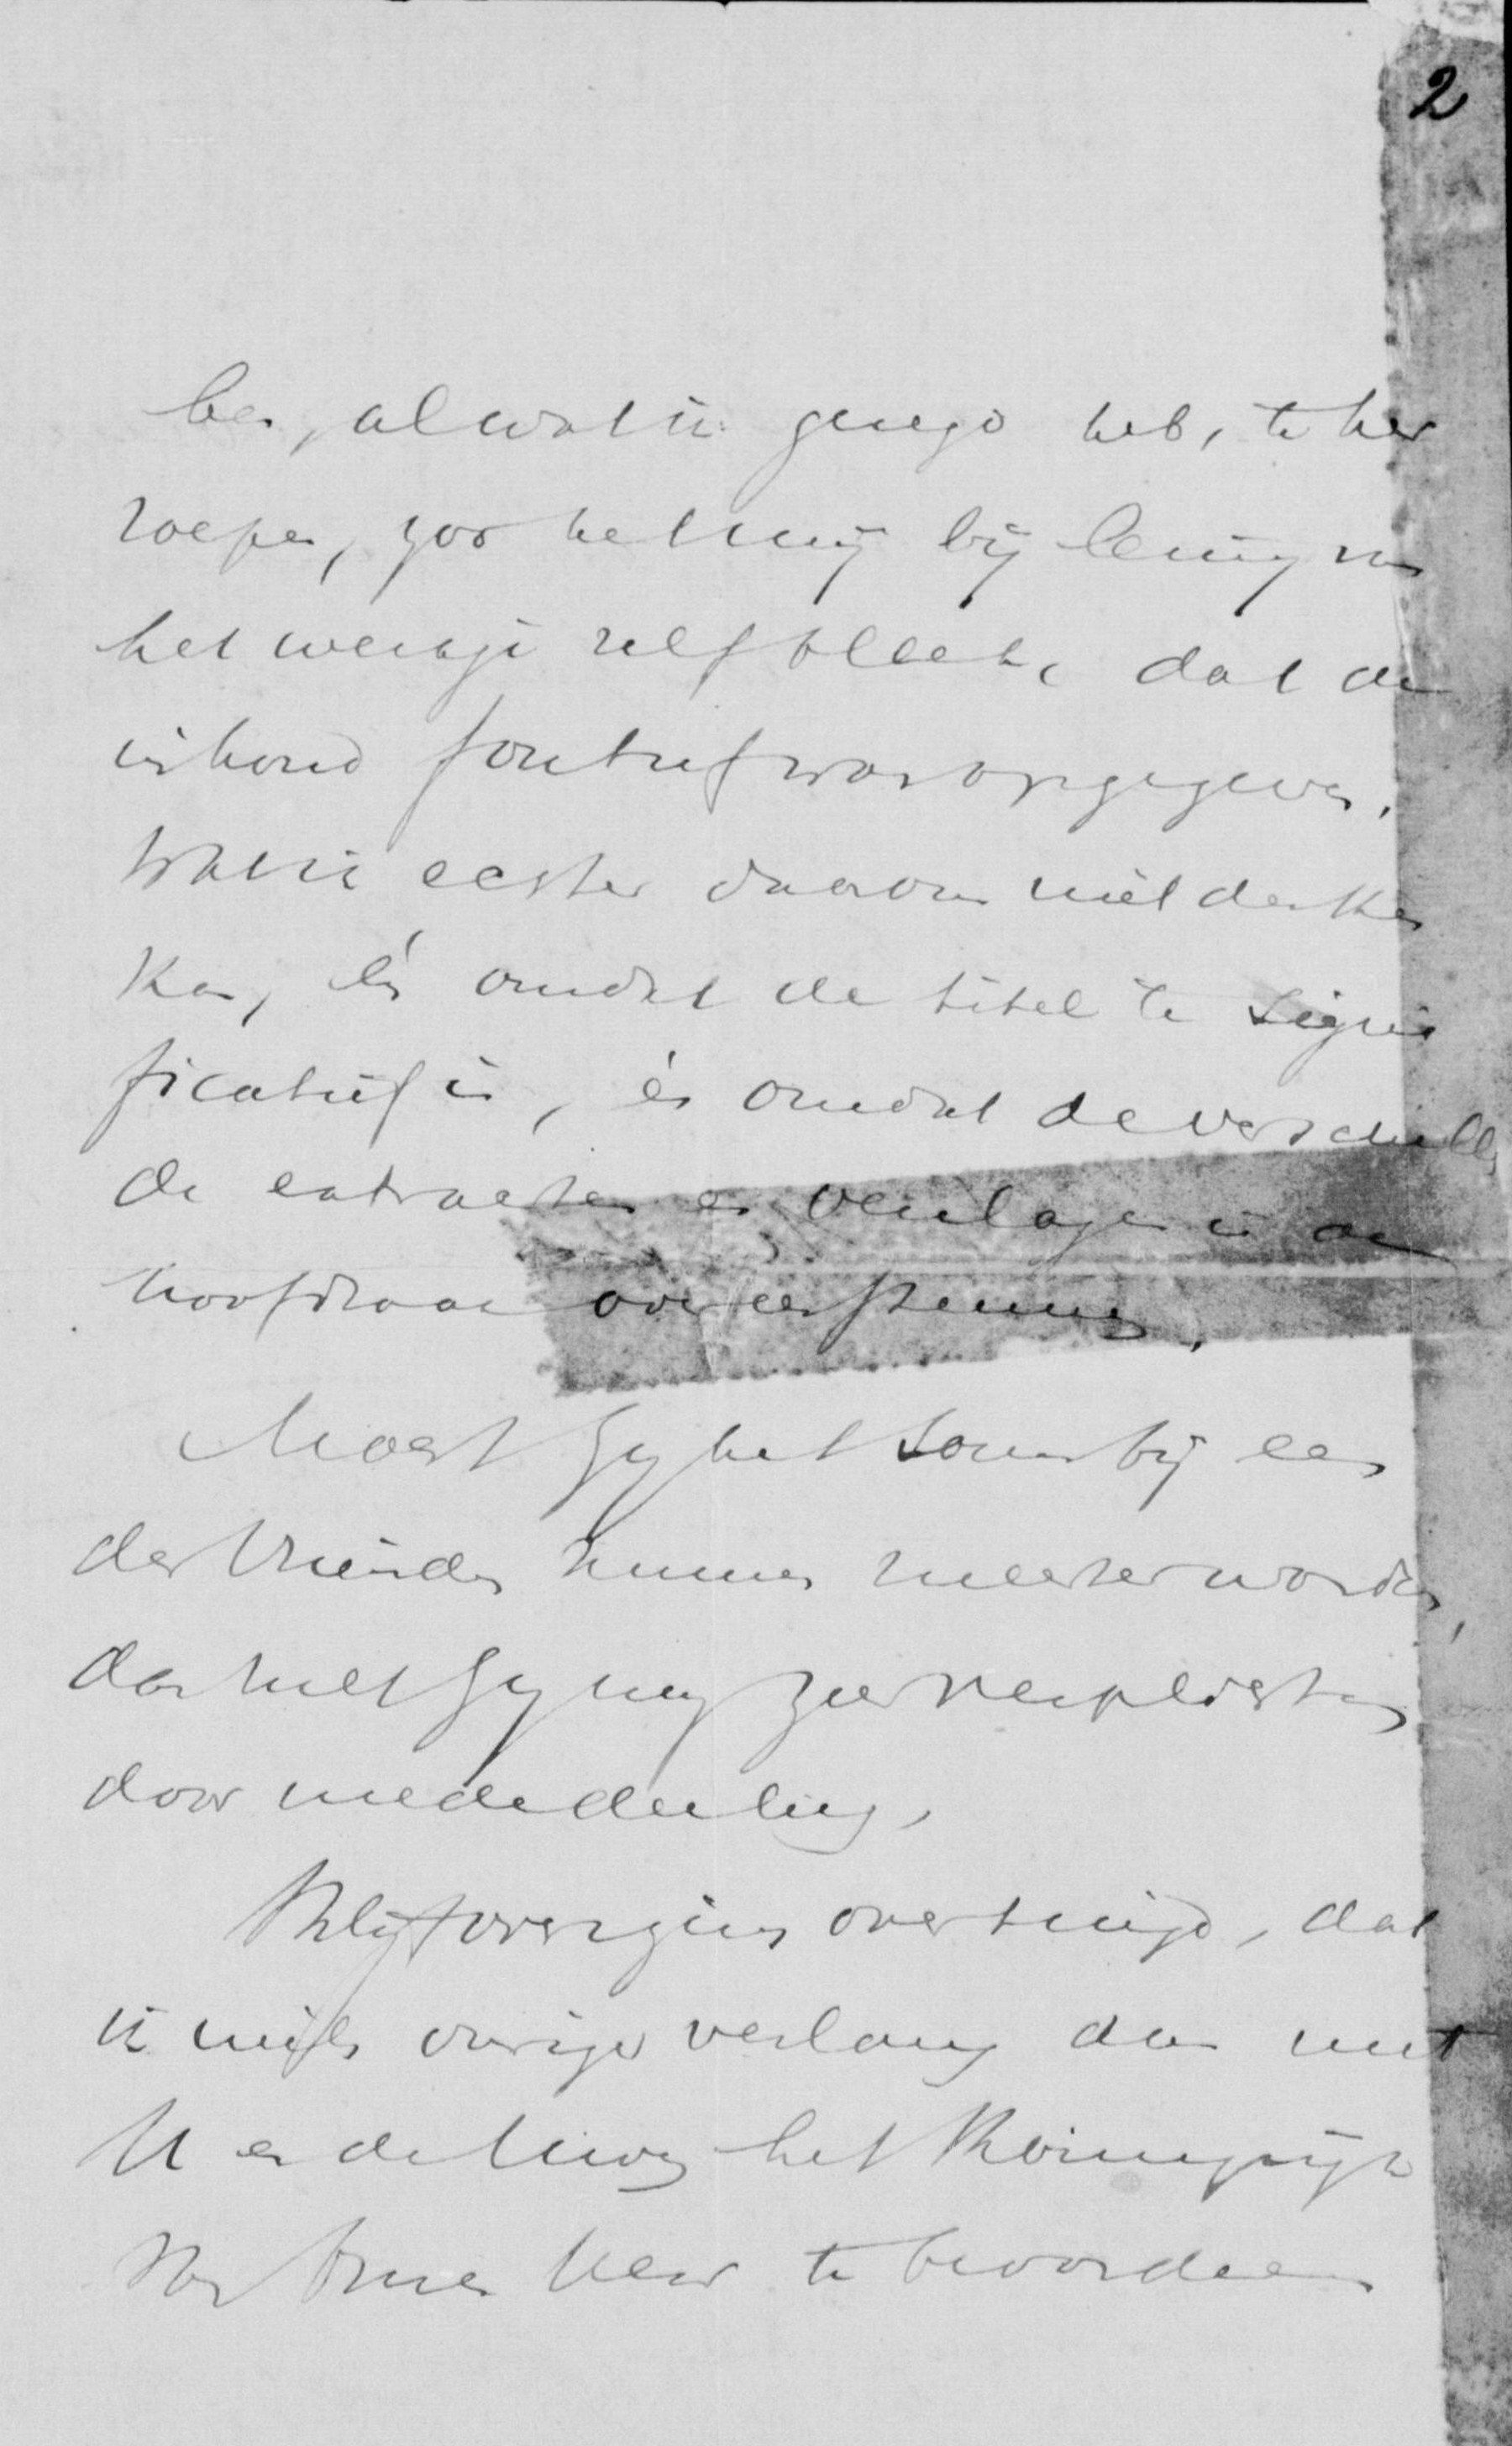 2
ben, al wat ik gezegd heb, te her
roepen, zoo het mij bij lezing van
het werkje zelf bleek, dat de
inhoud foutief was opgegeven.
Wat ik echter daarom niet denken
kan, én omdat de titel te signi
ficatief is, én omdat de verschillen
de extracten en verslagen in de
hoofdzaak overeenstemmen.
Mocht Gij het soms bij een
der vrienden kunnen meester worden,
dan zult Gij mij zeer verplichten
door mededeeling.
Blijf overigens overtuigd, dat
ik niets vuriger verlang dan met
U en de Uwen het Koningrijk
van onzen Heer te bevorderen